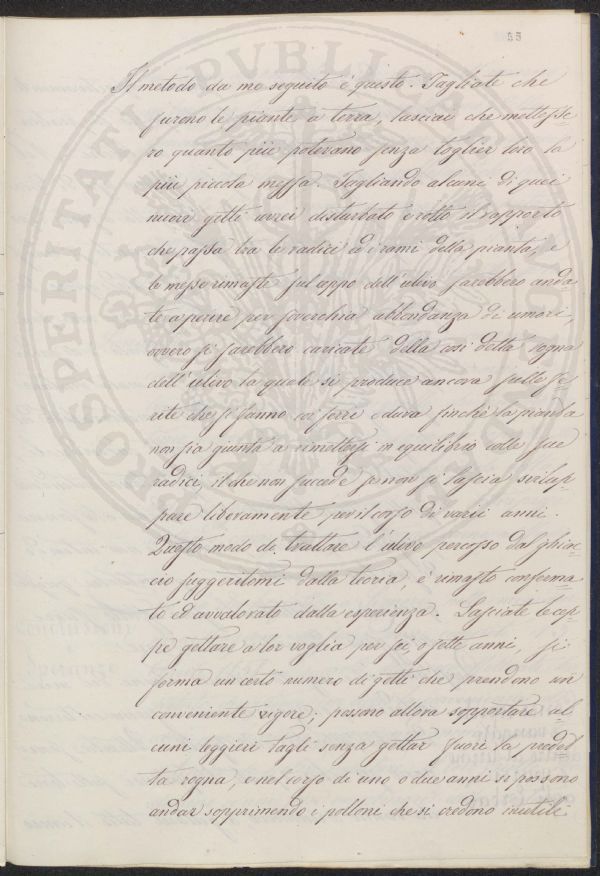 55
Il metodo da me seguito è questo. Tagliate che
furono le piante a terra, lasciai che mettesse-
ro quanto più potevano senza toglier loro la
più piccola messa. Tagliando alcuni di quei
nuovi getti avrei disturbato e rotto il rapporto
che passa tra le radici ed i rami della pianta, e
le messe rimaste sul ceppo dell'ulivo sarebbero anda-
te a perire per soverchia abbondanza di umori,
ovvero si sarebbero caricate della così detta rogna
dell'ulivo la quale si produce ancora sulle fe-
rite che si fanno coi ferri e dura finchè la pianta
non sia giunta a rimettersi in equilibrio colle sue
radici, il che non succede se non si lascia svilup-
pare liberamente per il corso di varii anni.
Questo modo di trattare l'ulivo percosso dal ghiac-
cio suggeritomi dalla teoria, è rimasto conferma-
to ed avvalorato dalla esperienza. Lasciate le cep-
pe gettare a lor voglia per sei, o sette anni, si
forma un certo numero di getti che prendono un
conveniente vigore; possono allora sopportare al-
cuni leggieri tagli senza gettar fuori la predet-
ta rogna, e nel corso di uno o due anni si possono
andar sopprimendo i polloni che si credono inutili
PROSPERITATI PVBLICAE